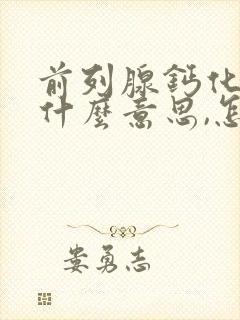 前列腺鈣化
什麼意思,怎
娄勇志